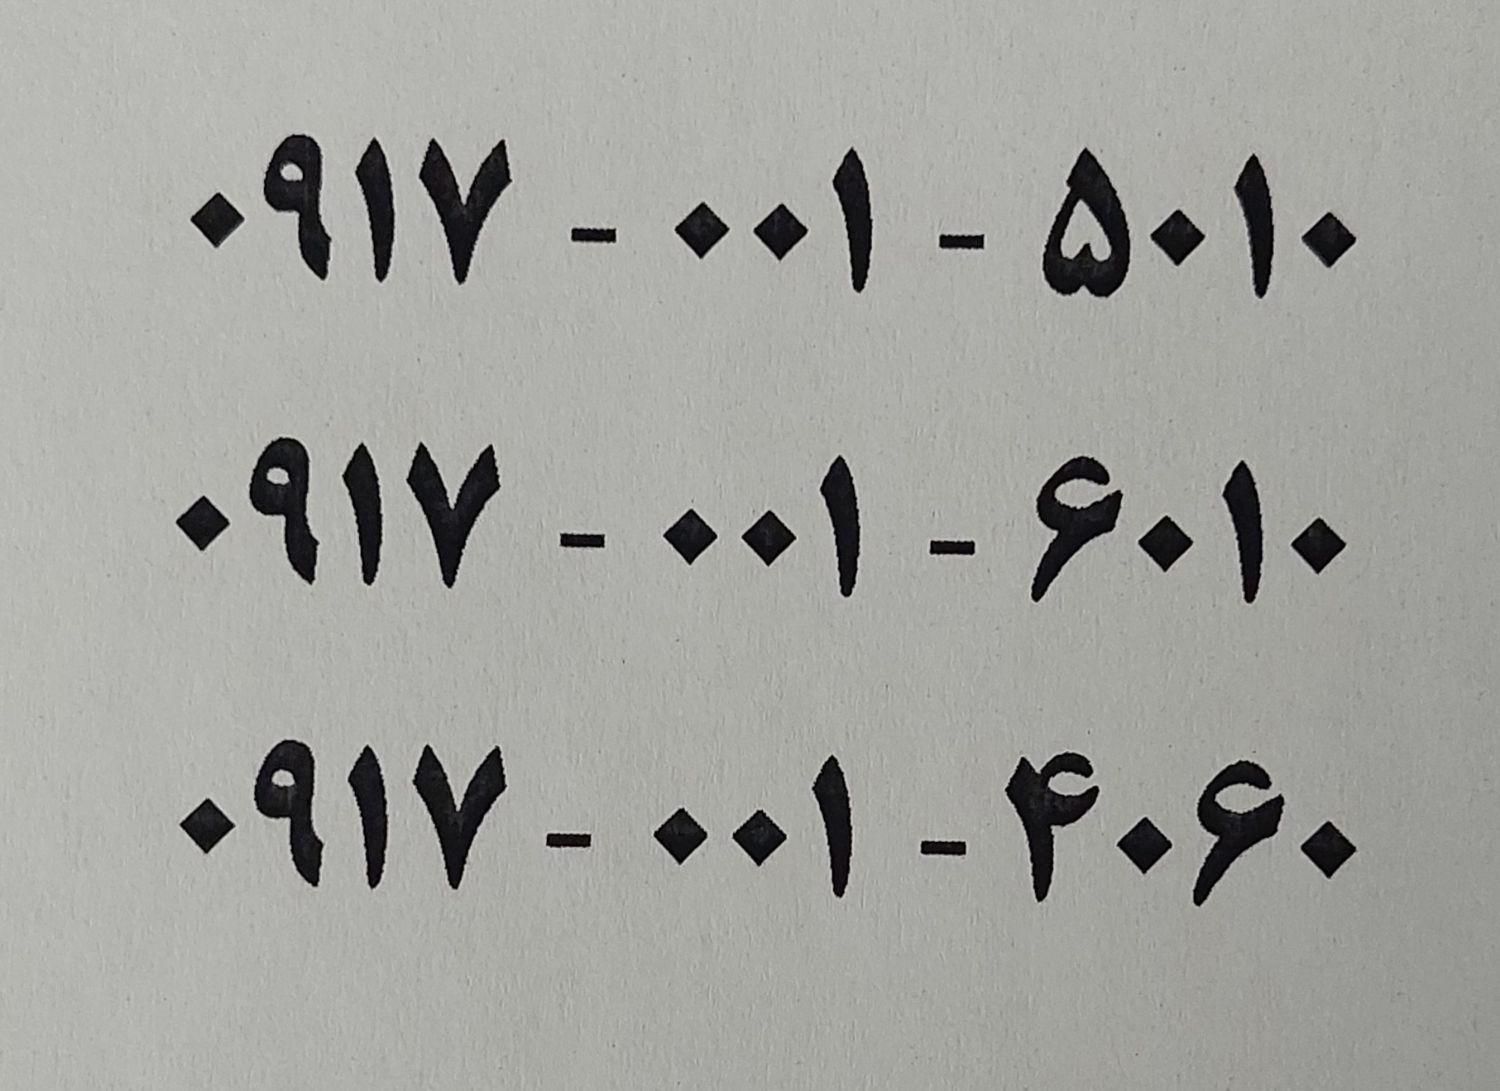 ۰۹۱۷ - ۰۰۱ - ۵۰۱۰
۰۹۱۷ - ۰۰۱ - ۶۰۱۰
۰۹۱۷ - ۰۰۱ - ۴۰۶۰